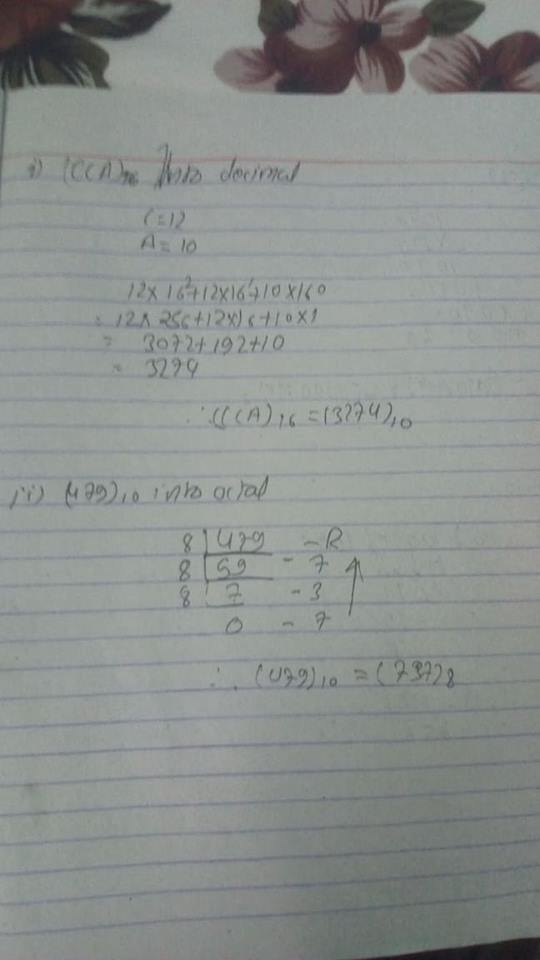 i) (CCA)16 Into decimal
C=12
A=10
12×16²+12×16¹+10×160
= 12×256+12×16+10×1
= 3072+192+10
= 3274
∴ (CCA)16 = (3274)10
ii) (479)10 into octal
8 | 479 - R
8 | 59 - 7
8 | 7 - 3
0 - 7
∴ (479)10 = (737)8